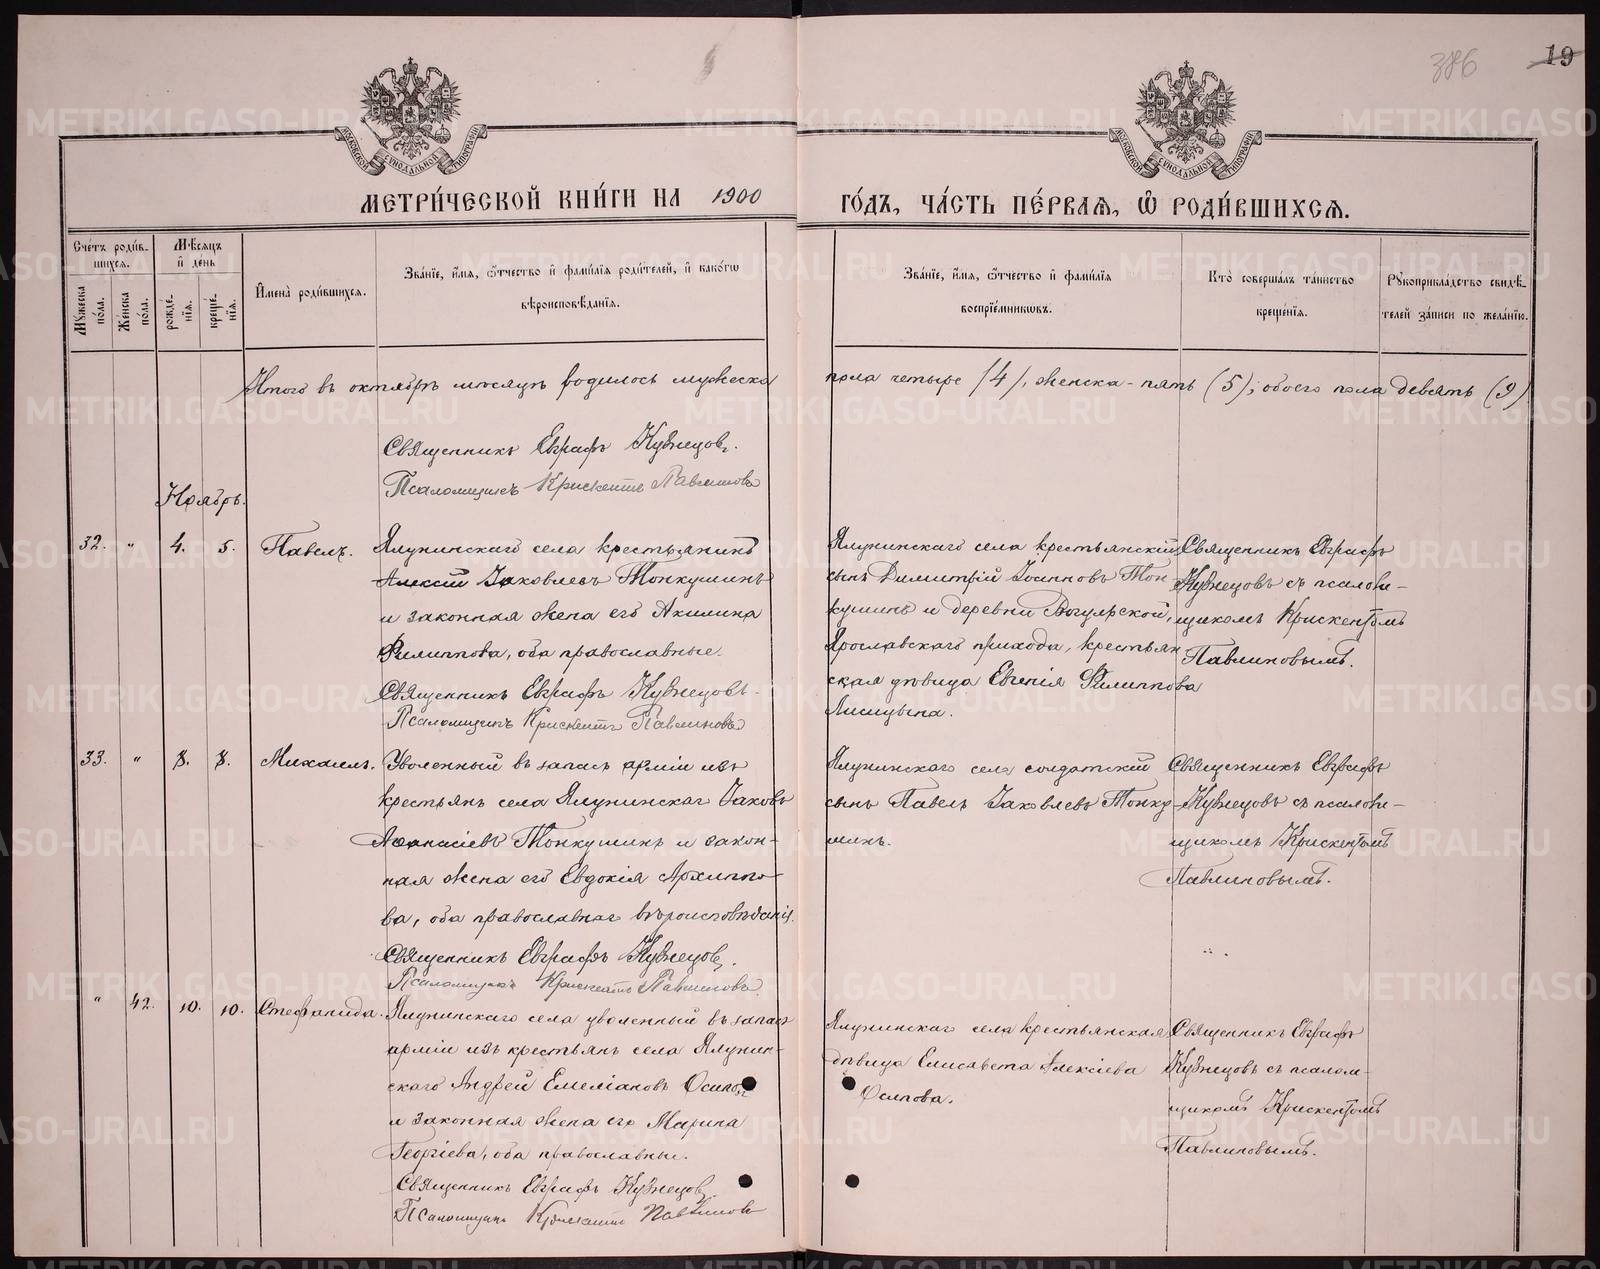 386
19
МОСКОВСКОЙ СѴНОДАЛЬНОЙ ТИПОГРАФІИ
МОСКОВСКОЙ СѴНОДАЛЬНОЙ ТИПОГРАФІИ
МЕТРИ́ЧЕСКОЙ КНИ́ГИ НА 1900
ГО́ДЪ, ЧА́СТЬ ПЕ́РВАѦ, Ѽ РОДИ́ВШИХСѦ.
Сче́тъ роди́в-
шихсѧ.
Мꙋ́жеска по́ла.
Же́нска по́ла.
Мѣ́сѧцъ
и҆ де́нь
рожде́-
нїѧ.
креще́-
нїѧ.
И҆мена̀ роди́вшихсѧ.
Зва́нїе, и҆́мѧ, ѻ҆́тчество и҆ фами́лїѧ роди́телей, и҆ како́гѡ
вѣроисповѣ́данїѧ.
Зва́нїе, и҆́мѧ, ѻ҆́тчество и҆ фами́лїѧ
воспрїе́мникѡвъ.
Кто̀ соверша́лъ та́инство
креще́нїѧ.
Рꙋкоприкла́дство свидѣ́-
телей за́писи по жела́нїю.
Итого въ октябрѣ мѣсяцѣ родилось мужеска
пола четыре (4), женска - пять (5); обоего пола девять (9)
Священникъ Евграфъ Кузнецовъ.
Псаломщикъ Крискентъ Павлиновъ
Ноябрь.
32. " 4. 5. Павелъ.
Ялунинскаго села крестьянинъ
Алексій Іаковлевъ Тонкушинъ
и законная жена его Акилина
Филиппова, оба православные.
Священникъ Евграфъ Кузнецовъ.
Псаломщикъ Крискентъ Павлиновъ
Ялунинскаго села крестьянскій
сынъ Димитрій Іосиповъ Тон-
кушинъ и деревни Вогульской,
Ярославскаго прихода, крестьян
ская дѣвица Евгенія Филиппова
Лисицына.
Священникъ Евграфъ
Кузнецовъ съ псалом-
щикомъ Крискентомъ
Павлиновымъ.
33. " 8. 8. Михаилъ.
Уволенный въ запасъ арміи изъ
крестьянъ села Ялунинскаг Іаковъ
Аѳанасіевъ Тонкушинъ и закон-
ная жена его Евдокія Архиппо-
ва, оба православнаг вѣроисповѣданія.
Священникъ Евграфъ Кузнецовъ.
Псаломщикъ Крискентъ Павлиновъ
Ялунинскаго села солдатскій
сынъ Павелъ Іаковлевъ Тонку-
шинъ.
Священникъ Евграфъ
Кузнецовъ съ псалом-
щикомъ Крискентомъ
Павлиновымъ.
" 42. 10. 10. Стефанида.
Ялунинскаго села уволенный въ запасъ
арміи изъ крестьянъ села Ялунин-
скаго Андрей Емеліановъ Осиповъ
и законная жена его Марина
Георгіева, оба православные.
Священникъ Евграфъ Кузнецовъ.
Псаломщикъ Крискентъ Павлиновъ
Ялунинскаг села крестьянская
дѣвица Елисавета Алексіева
Осипова.
Священникъ Евграфъ
Кузнецовъ съ псалом-
щикомъ Крискентомъ
Павлиновымъ.
METRIKI.GASO-URAL.RU